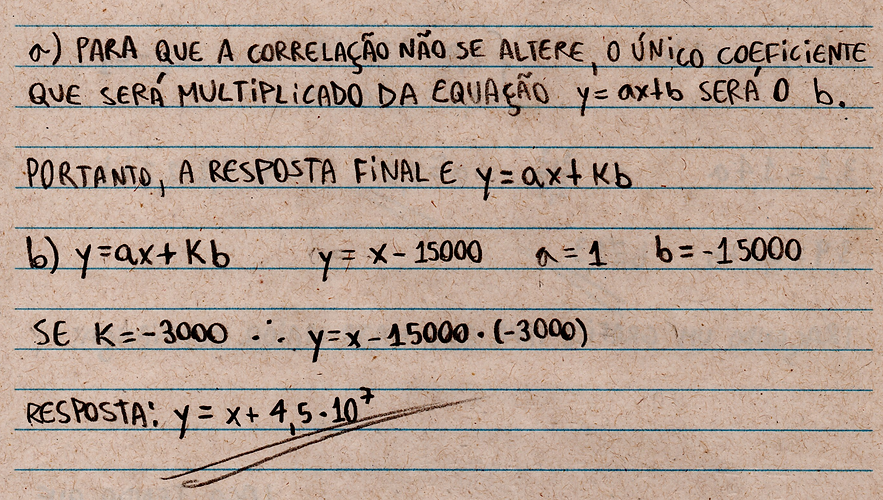 a) PARA QUE A CORRELAÇÃO NÃO SE ALTERE, O ÚNICO COEFICIENTE
QUE SERÁ MULTIPLICADO DA EQUAÇÃO y=ax+b SERÁ O b.
PORTANTO, A RESPOSTA FINAL E y=ax+Kb
b) y=ax+Kb y=x-15000 a=1 b=-15000
SE K=-3000 ∴ y=x-15000·(-3000)
RESPOSTA: y=x+4,5·10⁷